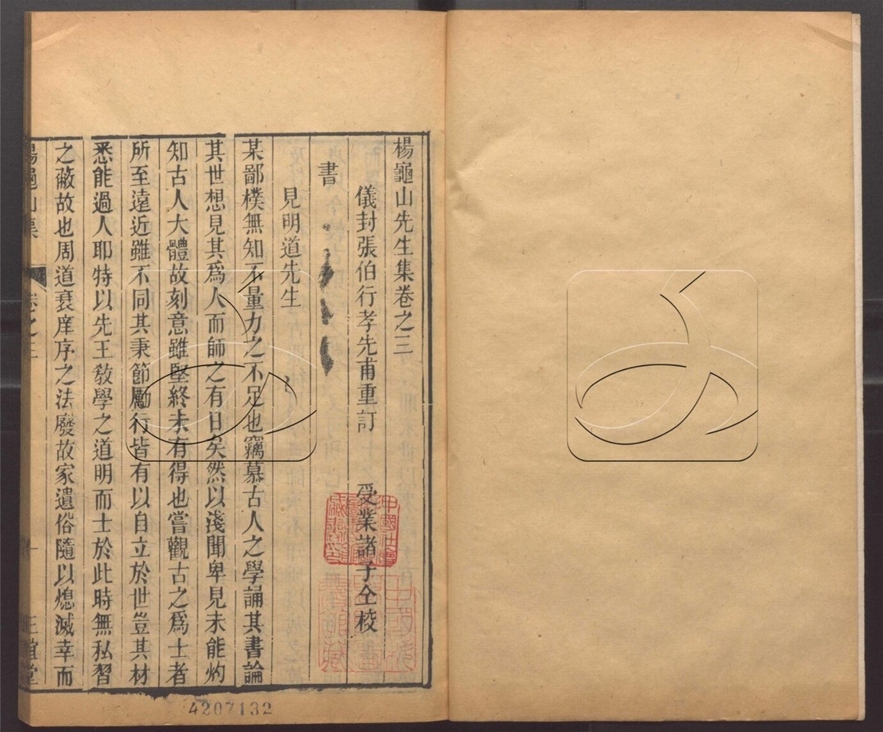 楊龜山先生集卷之三
儀封張伯行孝先甫重訂 受業諸子仝校
書
見明道先生
某鄙樸無知不量力之不足也竊慕古人之學誦其書論
其世想見其爲人而師之有日矣然以淺聞卑見未能灼
知古人大體故刻意雖堅終未有得也嘗觀古之爲士者
所至遠近雖不同其秉節勵行皆有以自立於世豈其材
悉能過人耶特以先王敎學之道明而士於此時無私習
之蔽故也周道衰庠序之法廢故家遺俗隨以熄滅幸而
楊龜山集 卷之三 一 正誼堂
4207132